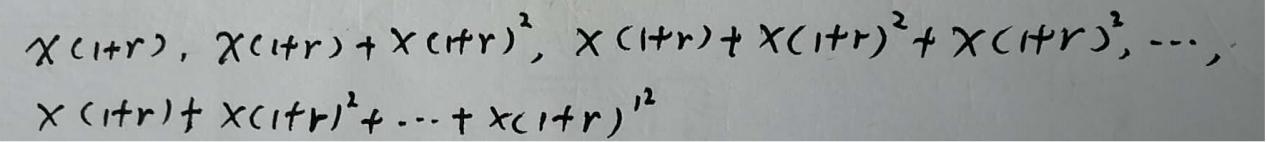 x(1+r), x(1+r)+x(1+r)², x(1+r)+x(1+r)²+x(1+r)³, ⋯,
x(1+r)+x(1+r)²+⋯+x(1+r)¹²